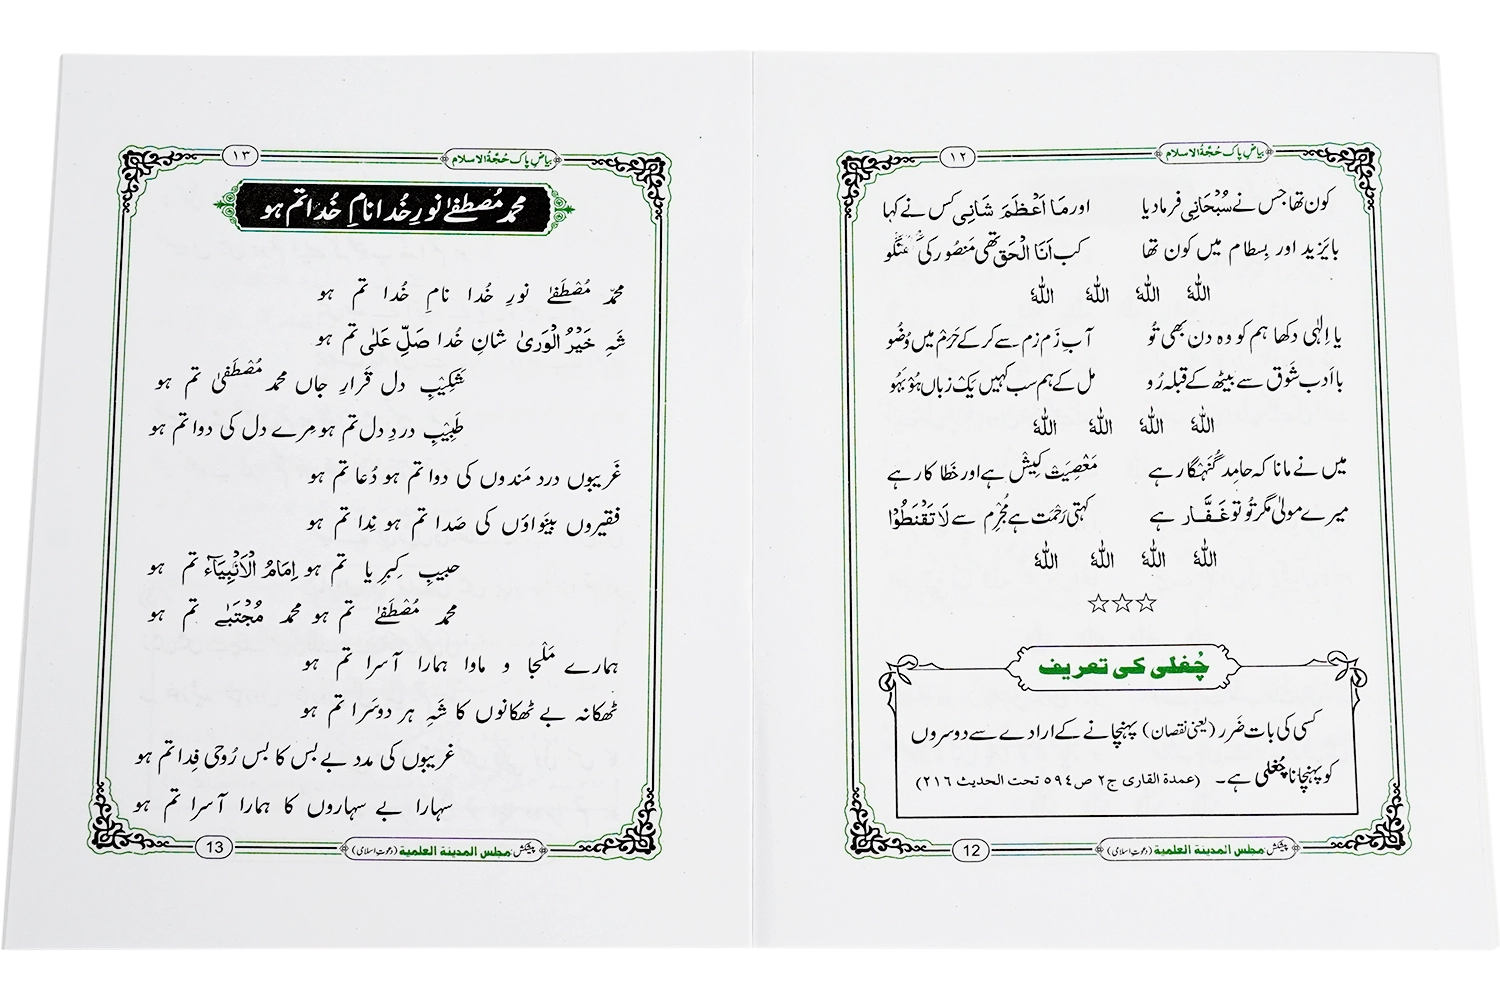 بیاضِ پاک حُجَّۃُ الاسلام
۱۲
کون تھا جس نے سُبْحَانِی فرمادیا اور مَا اَعْظَمَ شَانِی کس نے کہا
بایَزید اور بِسطام میں کون تھا کب اَنَا الْحَق تھی مَنصُور کی
اللہُ اللہُ اللہُ اللہُ
یا اِلٰہی دکھا ہم کو وہ دن بھی تُو آبِ زَم زَم سے کرکے حَرَم میں وُضُو
با اَدب شَوق سے بیٹھ کے قبلہ رُو مل کے ہم سب کہیں یک زباں ہُو بَہُو
اللہُ اللہُ اللہُ اللہُ
میں نے مانا کہ حامِد گُنَہگار ہے مَعْصِیَت کِیش ہے اور خَطا کار ہے
میرے مولیٰ مگر تُو تو غَفَّار ہے کہتی رَحْمَت ہے مُجْرِم سے لَا تَقْنَطُوْا
اللہُ اللہُ اللہُ اللہُ
☆☆☆
چُغلی کی تعریف
کسی کی بات ضَرَر (یعنی نقصان) پہنچانے کے ارادے سے دوسروں
کو پہنچانا چُغلی ہے۔ (عمدۃ القاری ج۲ ص۵۹۴ تحت الحدیث ۲۱۶)
پیشکش: مجلس المدینۃ العلمیۃ (دعوتِ اسلامی)
12
بیاضِ پاک حُجَّۃُ الاسلام
۱۳
محمد مُصطفےٰ نورِ خُدا نامِ خُدا تم ہو
محمّد مُصْطَفےٰ نورِ خُدا نامِ خُدا تم ہو
شَہِ خَیْرُ الْوَریٰ شانِ خُدا صَلِّ عَلٰی تم ہو
شَکِیْبِ دل قَرارِ جاں محمد مُصْطَفیٰ تم ہو
طَبِیْبِ دردِ دل تم ہو مِرے دل کی دوا تم ہو
غَریبوں درد مَندوں کی دوا تم ہو دُعا تم ہو
فقیروں بینَواؤں کی صَدا تم ہو نِدا تم ہو
حبیبِ کِبرِیا تم ہو اِمَامُ الْاَنْبِیَآء تم ہو
محمد مُصْطَفےٰ تم ہو محمد مُجْتَبےٰ تم ہو
ہمارے مَلْجا و ماوا ہمارا آسرا تم ہو
ٹھکانہ بے ٹھکانوں کا شَہِ ہر دوسَرا تم ہو
غریبوں کی مدد بے بس کا بس رُوحی فِدا تم ہو
سہارا بے سہاروں کا ہمارا آسرا تم ہو
پیشکش: مجلس المدینۃ العلمیۃ (دعوتِ اسلامی)
13